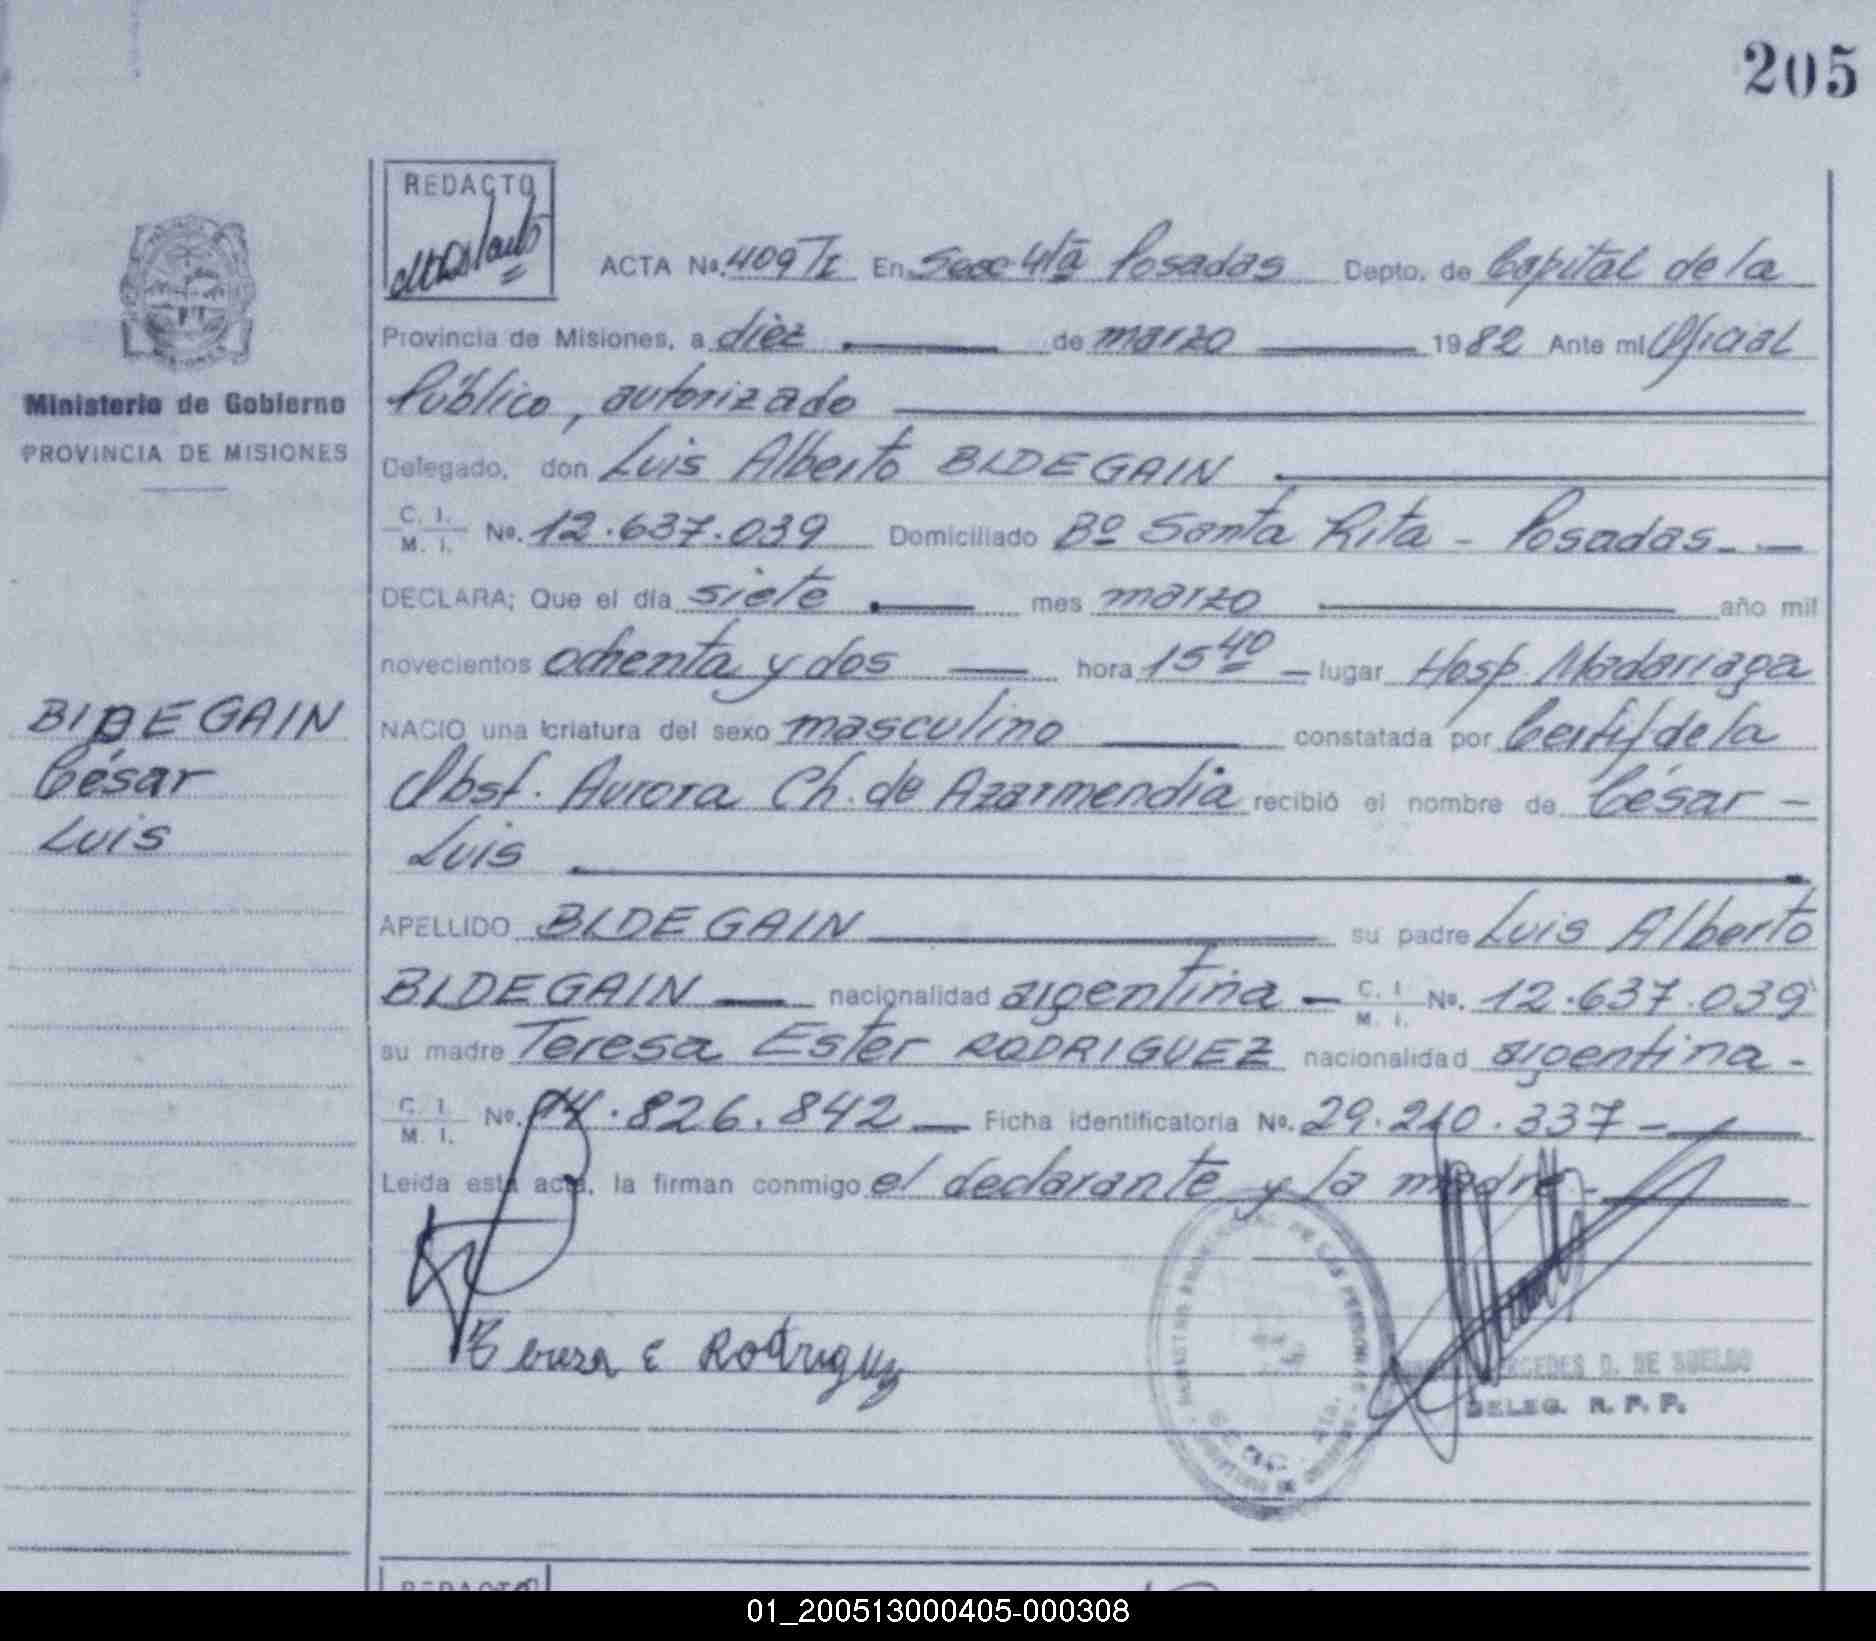 205
REDACTO
ACTA No. 409 T/I En Secc 4ta Posadas Depto. de Capital de la
Provincia de Misiones, a diez de marzo 1982 Ante mi Oficial
Público, autorizado
Ministerio de Gobierno
PROVINCIA DE MISIONES
Delegado, don Luis Alberto BIDEGAIN
C. I.
M. I. No. 12.637.039 Domiciliado Bº Santa Rita - Posadas -
DECLARA; Que el día siete mes marzo año mil
novecientos ochenta y dos hora 15 40 - lugar Hosp. Madariaga
BIDEGAIN
César
Luis
NACIO una criatura del sexo masculino constatada por Certif de la
Obst. Aurora Ch. de Azarmendia recibió el nombre de César -
Luis
APELLIDO BIDEGAIN su padre Luis Alberto
BIDEGAIN nacionalidad argentina - C. I.
M. I. No. 12.637.039
su madre Teresa Ester RODRIGUEZ nacionalidad argentina -
C. I.
M. I. No. 14.826.842 Ficha identificatoria No. 29.210.337 -
Leída esta acta, la firman conmigo el declarante y la madre -
Teresa E Rodriguez
MERCEDES D. DE SUELDO
DELEG. R. P. P.
REDACTO
01_200513000405-000308